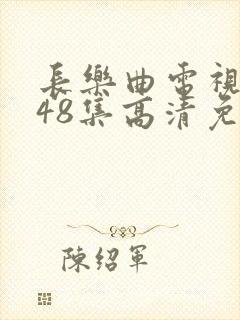 長樂曲電視
48集高清免
陳紹軍